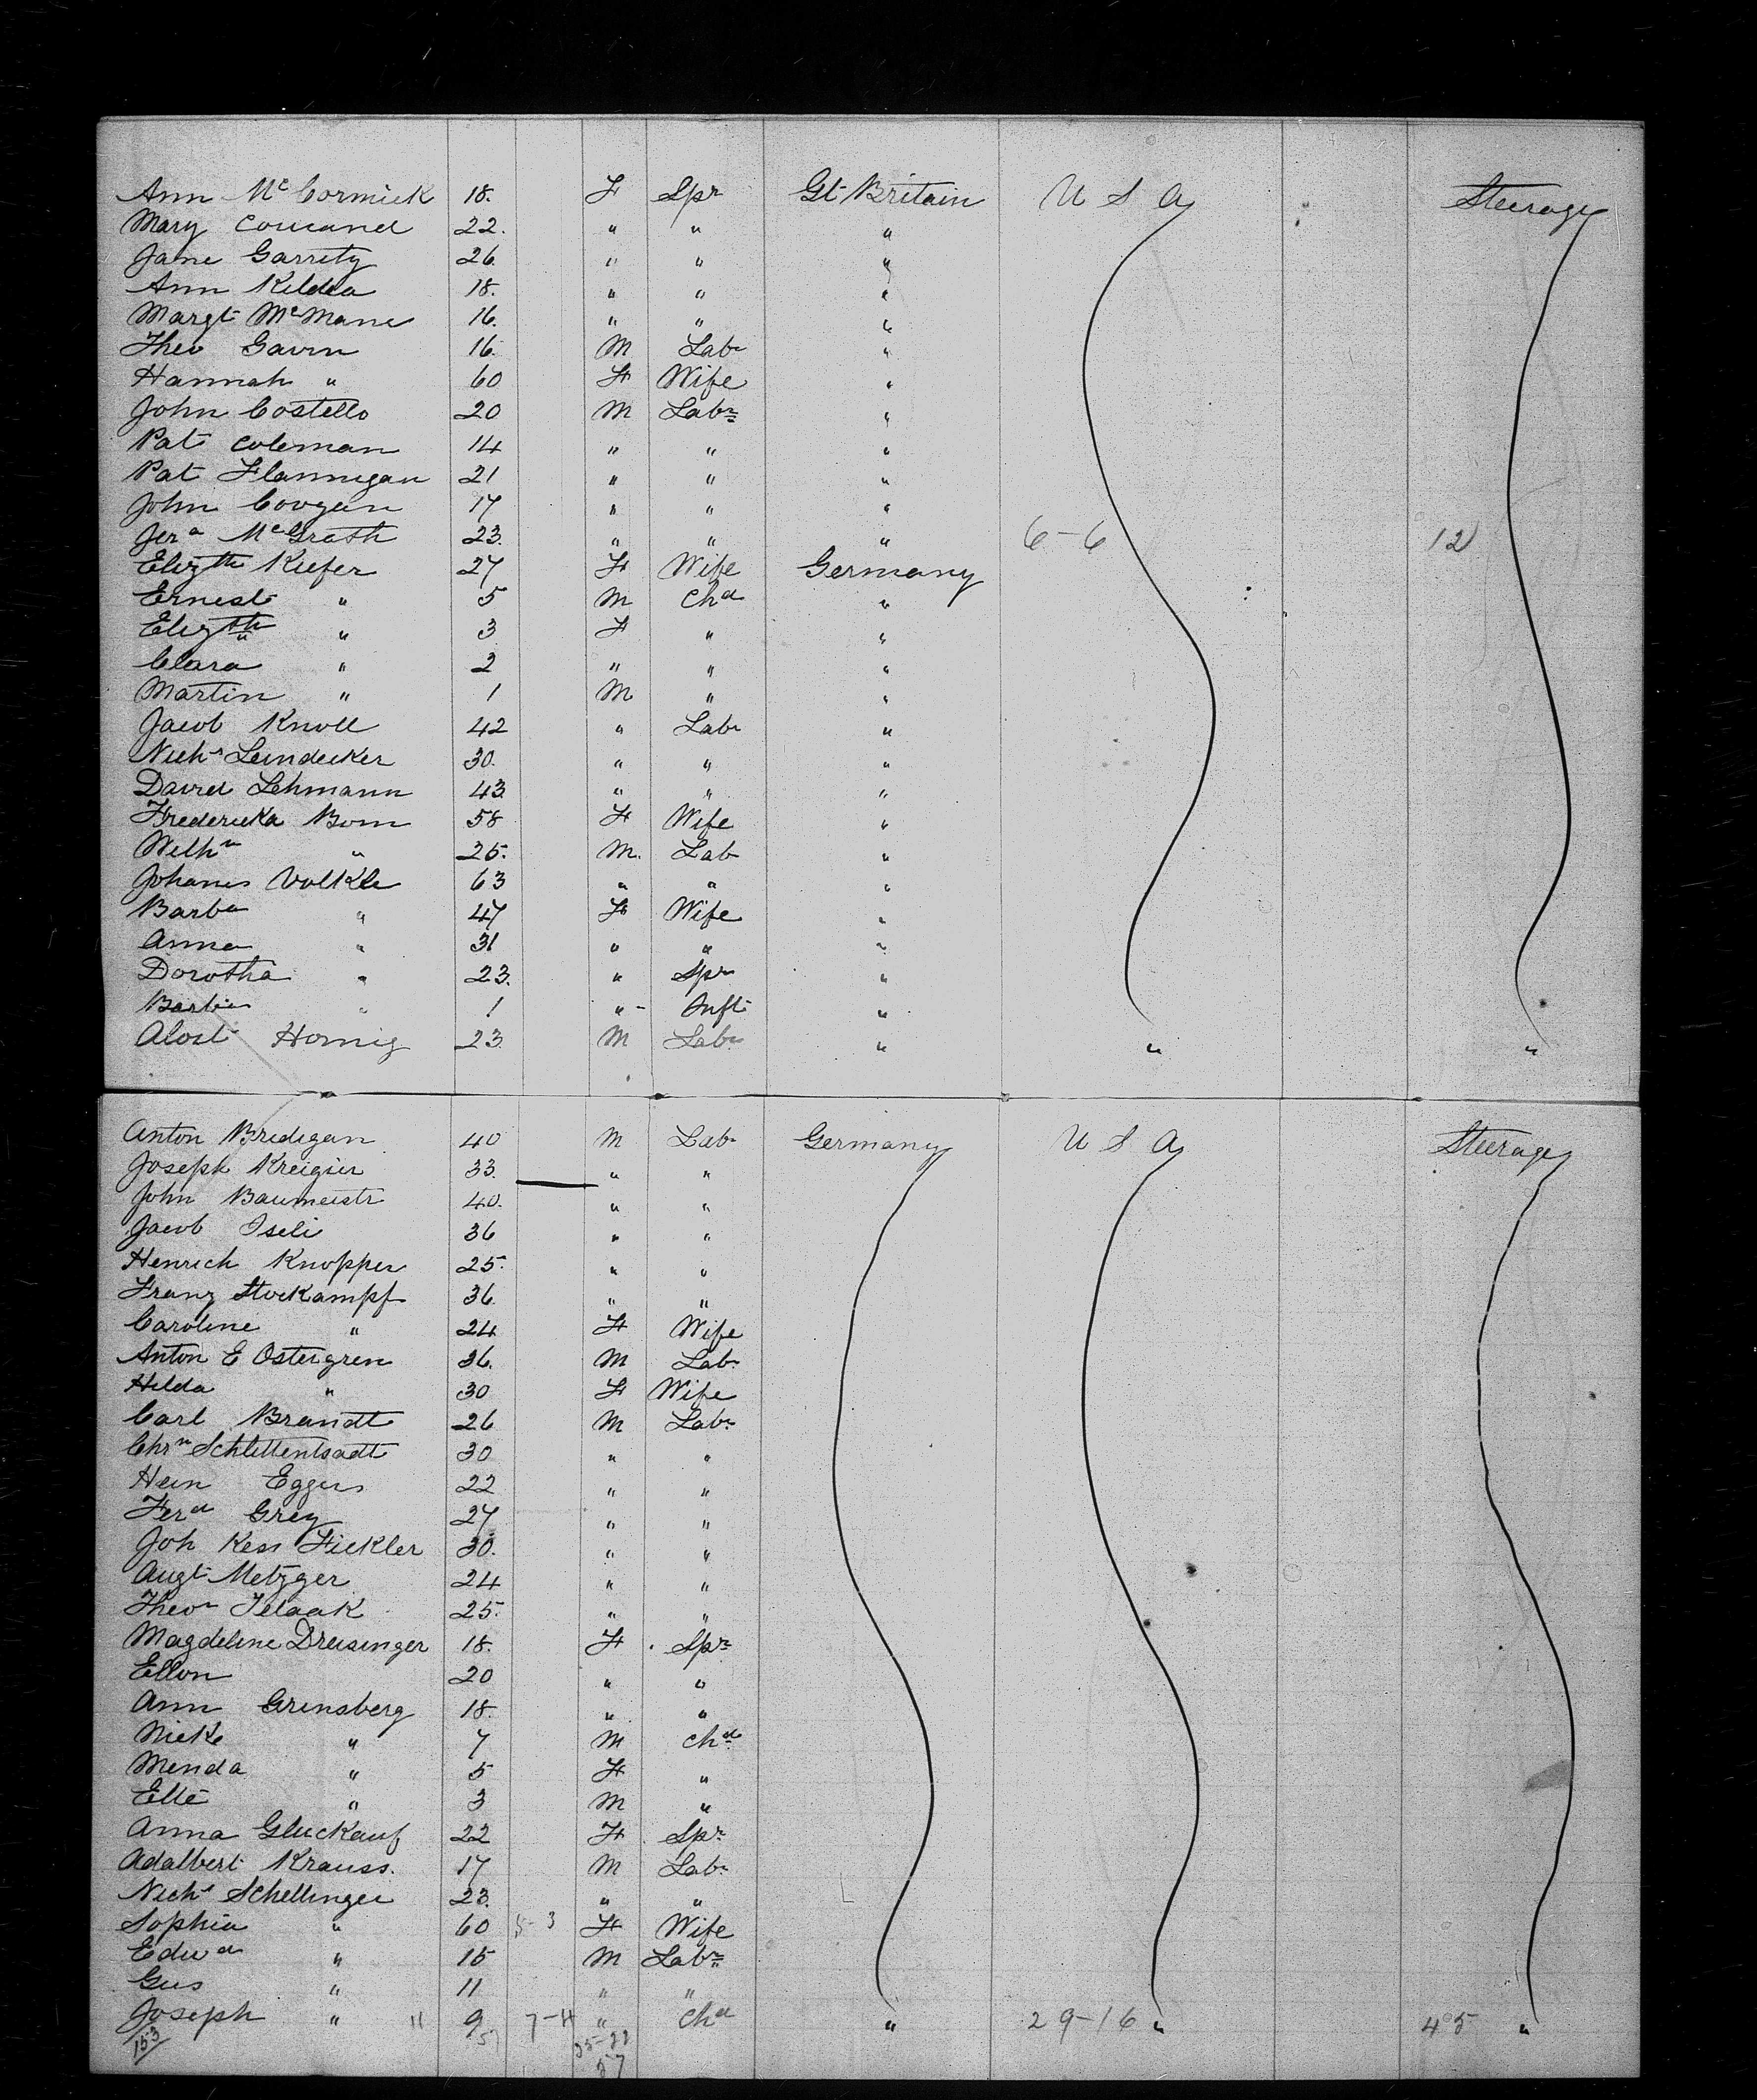 Ann McCormick 18. F Spr Gt Britain U S A Steerage
Mary 22. " " "
Jane Garrety 26. " " "
Ann Kildea 18. " " "
Margt McMane 16. " " "
Theo Gavin 16. M Labr "
Hannah " 60 F Wife "
John Costello 20 M Labr "
Pat Coleman 14 " " "
Pat Flannigan 21 " " "
John Coogan 17 " " "
Jera McGrath 23. " " " 6-6 12
Elizth Kiefer 27 F Wife Germany
Ernest " 5 M Chd "
Elizth " 3 F " "
Clara " 2 " " "
Martin " 1 M " "
Jacob Knoll 42 " Labr "
Nichs Leindecker 30. " " "
David Lehmann 43 " " "
Fredericka Born 58 F Wife "
Welhm " 25. M. Lab "
Johanes Volkle 63 " " "
Barba " 47 F Wife "
Anna " 31 " " "
Dorotha " 23. " Spr "
Barba " 1 " Inft "
Alost Hornig 23. M Labr " " "
Anton Bredigan 40 M Labr Germany U S A Steerage
Joseph Kreigier 33. " "
John Baumeistr 40. " "
Jacob Iseli 36 " "
Henrich Knopper 25. " "
Franz Stockampf 36. " "
Caroline " 24 F Wife
Anton E Ostergren 36. M Labr
Hilda " 30 F Wife
Carl Brandt 26 M Labr
Chrn Schlettentsadt 30 " "
Hein Eggers 22 " "
Ferd Grey 27 " "
Joh Kess Fickler 30. " "
Augt Metzger 24 " "
Theor 25. " "
Magdeline Dreisinger 18. F Spr
Ellon 20 " "
Ann Grensberg 18. " "
Nicke " 7 M Chd
Menda " 5 F "
Elle " 3 M "
Anna Gluckauf 22 F Spr
Adalbert Krauss. 17 M Labr
Nichs Schellinger 23. " "
Sophia " 60 5-3 F Wife
Edwd " 15 M Labr
Gus " 11 " "
Joseph " 11 9 7-4 " Chd " 29-16 " 45 "
153 57 35-22
57